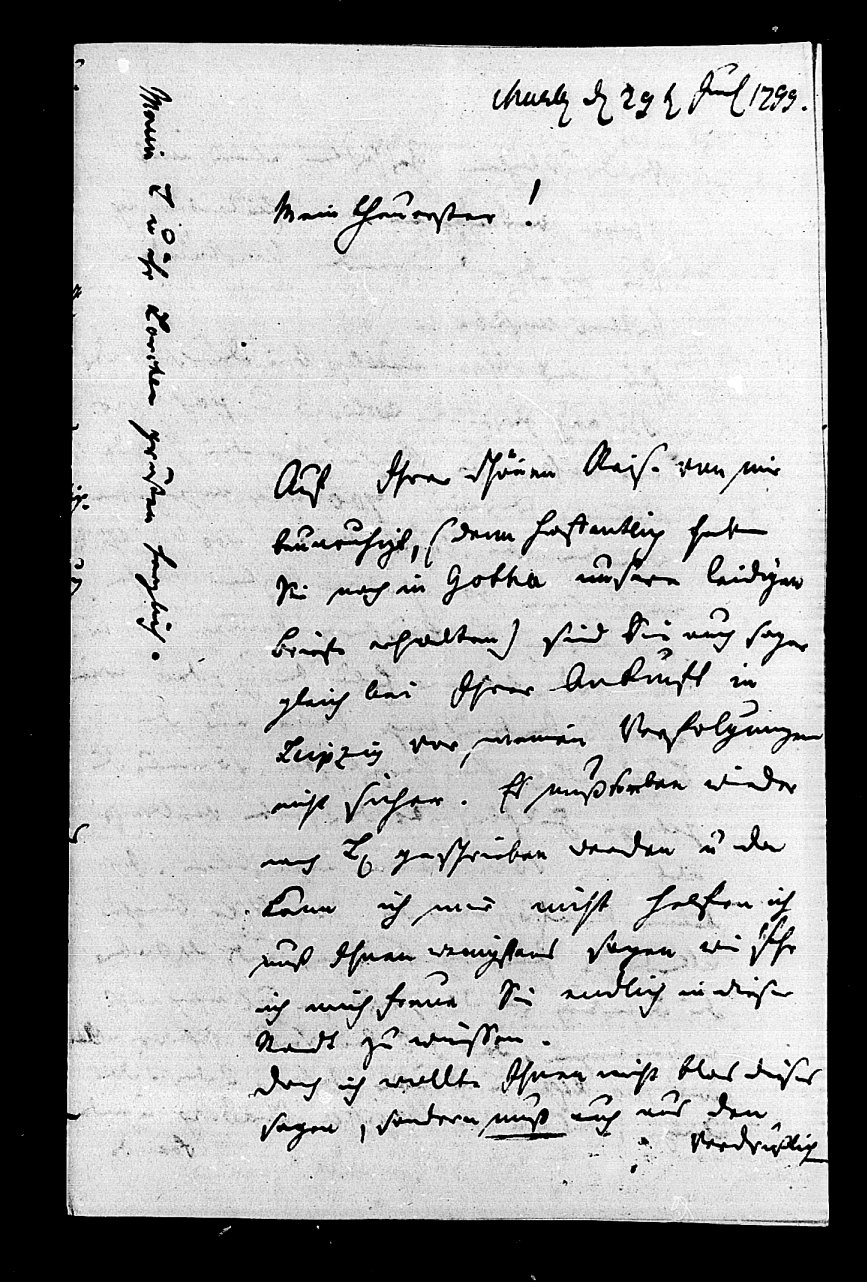 d 29 Jul 1799.
Mein Theuerster!
Auf Ihrer schönen Reise von mir
beunruhigt, (denn hoffentlich haben
Sie noch in Gotha unsere leidigen
Briefe erhalten) sind Sie auch sogar
gleich bei Ihrer Ankunft in
Leipzig vor meinen Verfolgungen
nicht sicher. Es muß wieder
nach L. geschrieben werden u da
kann ich mir nicht helfen ich
muß Ihnen wenigstens sagen wie sehr
ich mich freue Sie endlich in dieser
Stadt zu wissen.
Doch ich wollte Ihnen nicht blos dieses
sagen, sondern muß auch aus den
verdrüßlich
Meine u ihr grüßen herzlich.